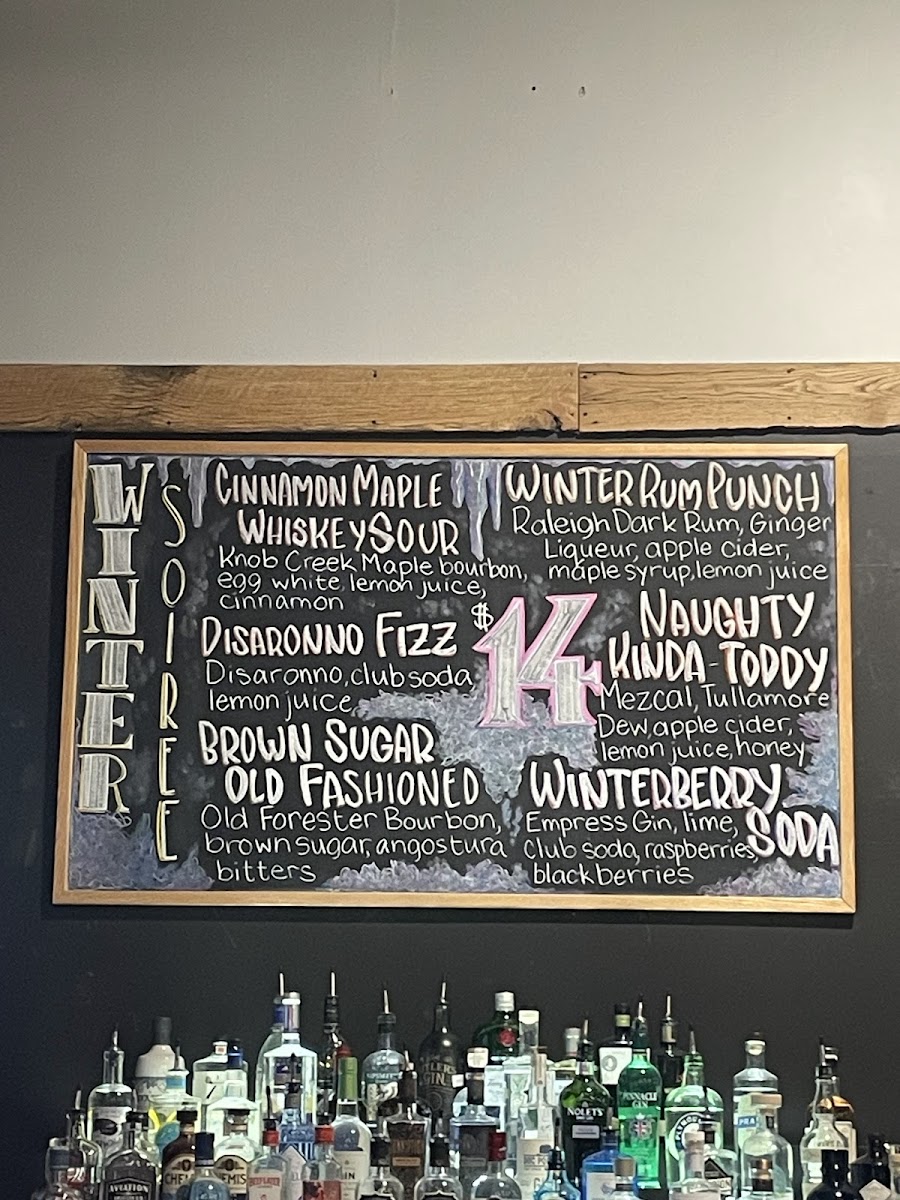 WINTER
SOIREE
CINNAMON MAPLE
WHISKEY SOUR
Knob Creek Maple bourbon,
egg white, lemon juice,
cinnamon
DISARONNO FIZZ
Disaronno, club soda,
lemon juice
BROWN SUGAR
OLD FASHIONED
Old Forester Bourbon,
brown sugar, angostura
bitters
$14
WINTER RUM PUNCH
Raleigh Dark Rum, Ginger
Liqueur, apple cider,
maple syrup, lemon juice
NAUGHTY
KINDA-TODDY
Mezcal, Tullamore
Dew, apple cider,
lemon juice, honey
WINTERBERRY
SODA
Empress Gin, lime,
Club soda, raspberries,
blackberries
NOLET'S
PINNACLE
GIN
AVIATION
BEEFEATER